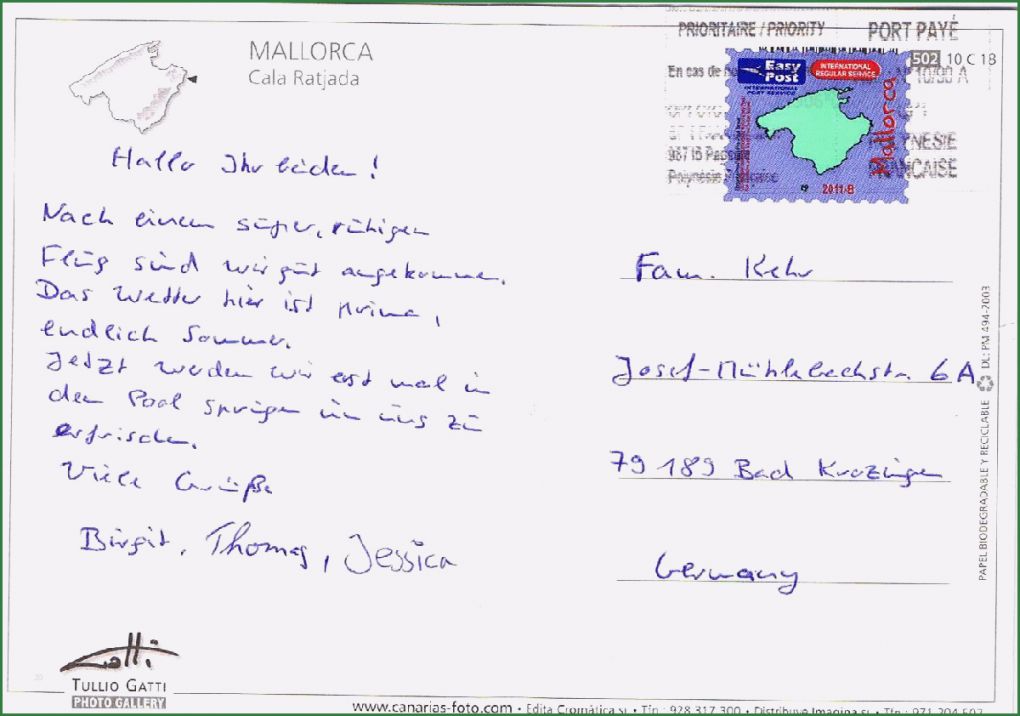 MALLORCA
Cala Ratjada
Hallo Ihr beiden!
Nach einem super, ruhigen
Flug sind wir gut angekommen.
Das Wetter hier ist prima,
endlich Sommer.
Jetzt werden wir erst mal in
den Pool springen um uns zu
erfrischen.
Viele Grüße
Birgit, Thomas, Jessica
TULLIO GATTI
PHOTO GALLERY
PRIORITAIRE / PRIORITY
PORT PAYÉ
En cas de
N° 10/90 A
98713 Papeete
Polynésie Française
POLYNESIE
FRANCAISE
502 10 C 18
Easy Post
INTERNATIONAL POST SERVICE
INTERNATIONAL REGULAR SERVICE
Mallorca
2011-B
Fam. Kehr
Josef-Mühlebachstr. 6A
79189 Bad Krozingen
Germany
PAPEL BIODEGRADABLE Y RECICLABLE DL: PM 494-2003
www.canarias-foto.com • Edita Cromática sl • Tfn.: 928 317 300 • Distribuye Imagina sl • Tfn.: 971 204 502